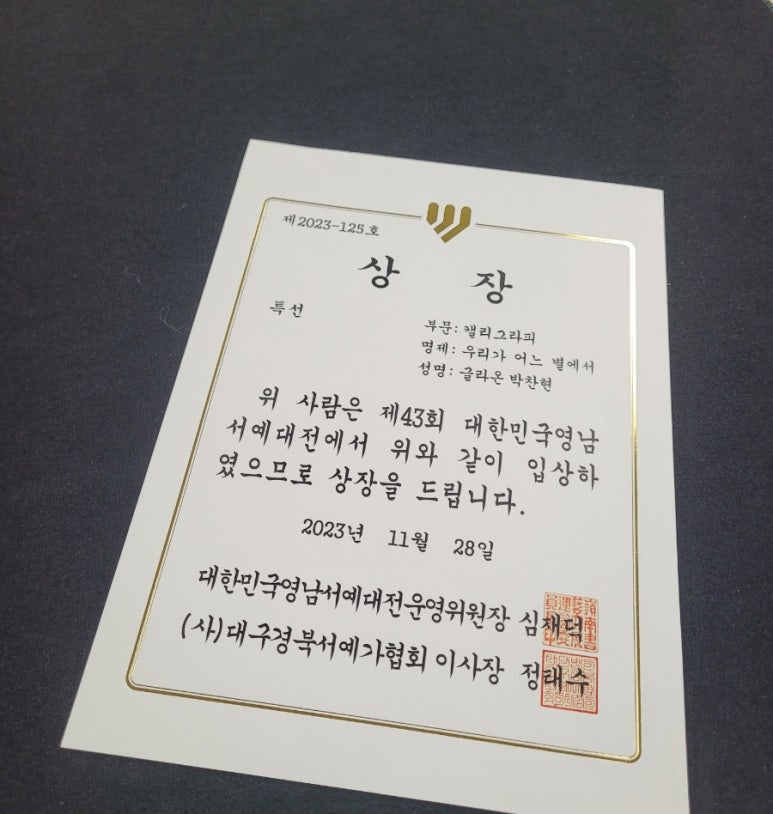 제2023-125호
상 장
특선
부문: 캘리그라피
명제: 우리가 어느 별에서
성명: 글라온 박찬현
위 사람은 제43회 대한민국영남
서예대전에서 위와 같이 입상하
였으므로 상장을 드립니다.
2023년 11월 28일
대한민국영남서예대전운영위원장 심재덕
(사)대구경북서예가협회 이사장 정태수